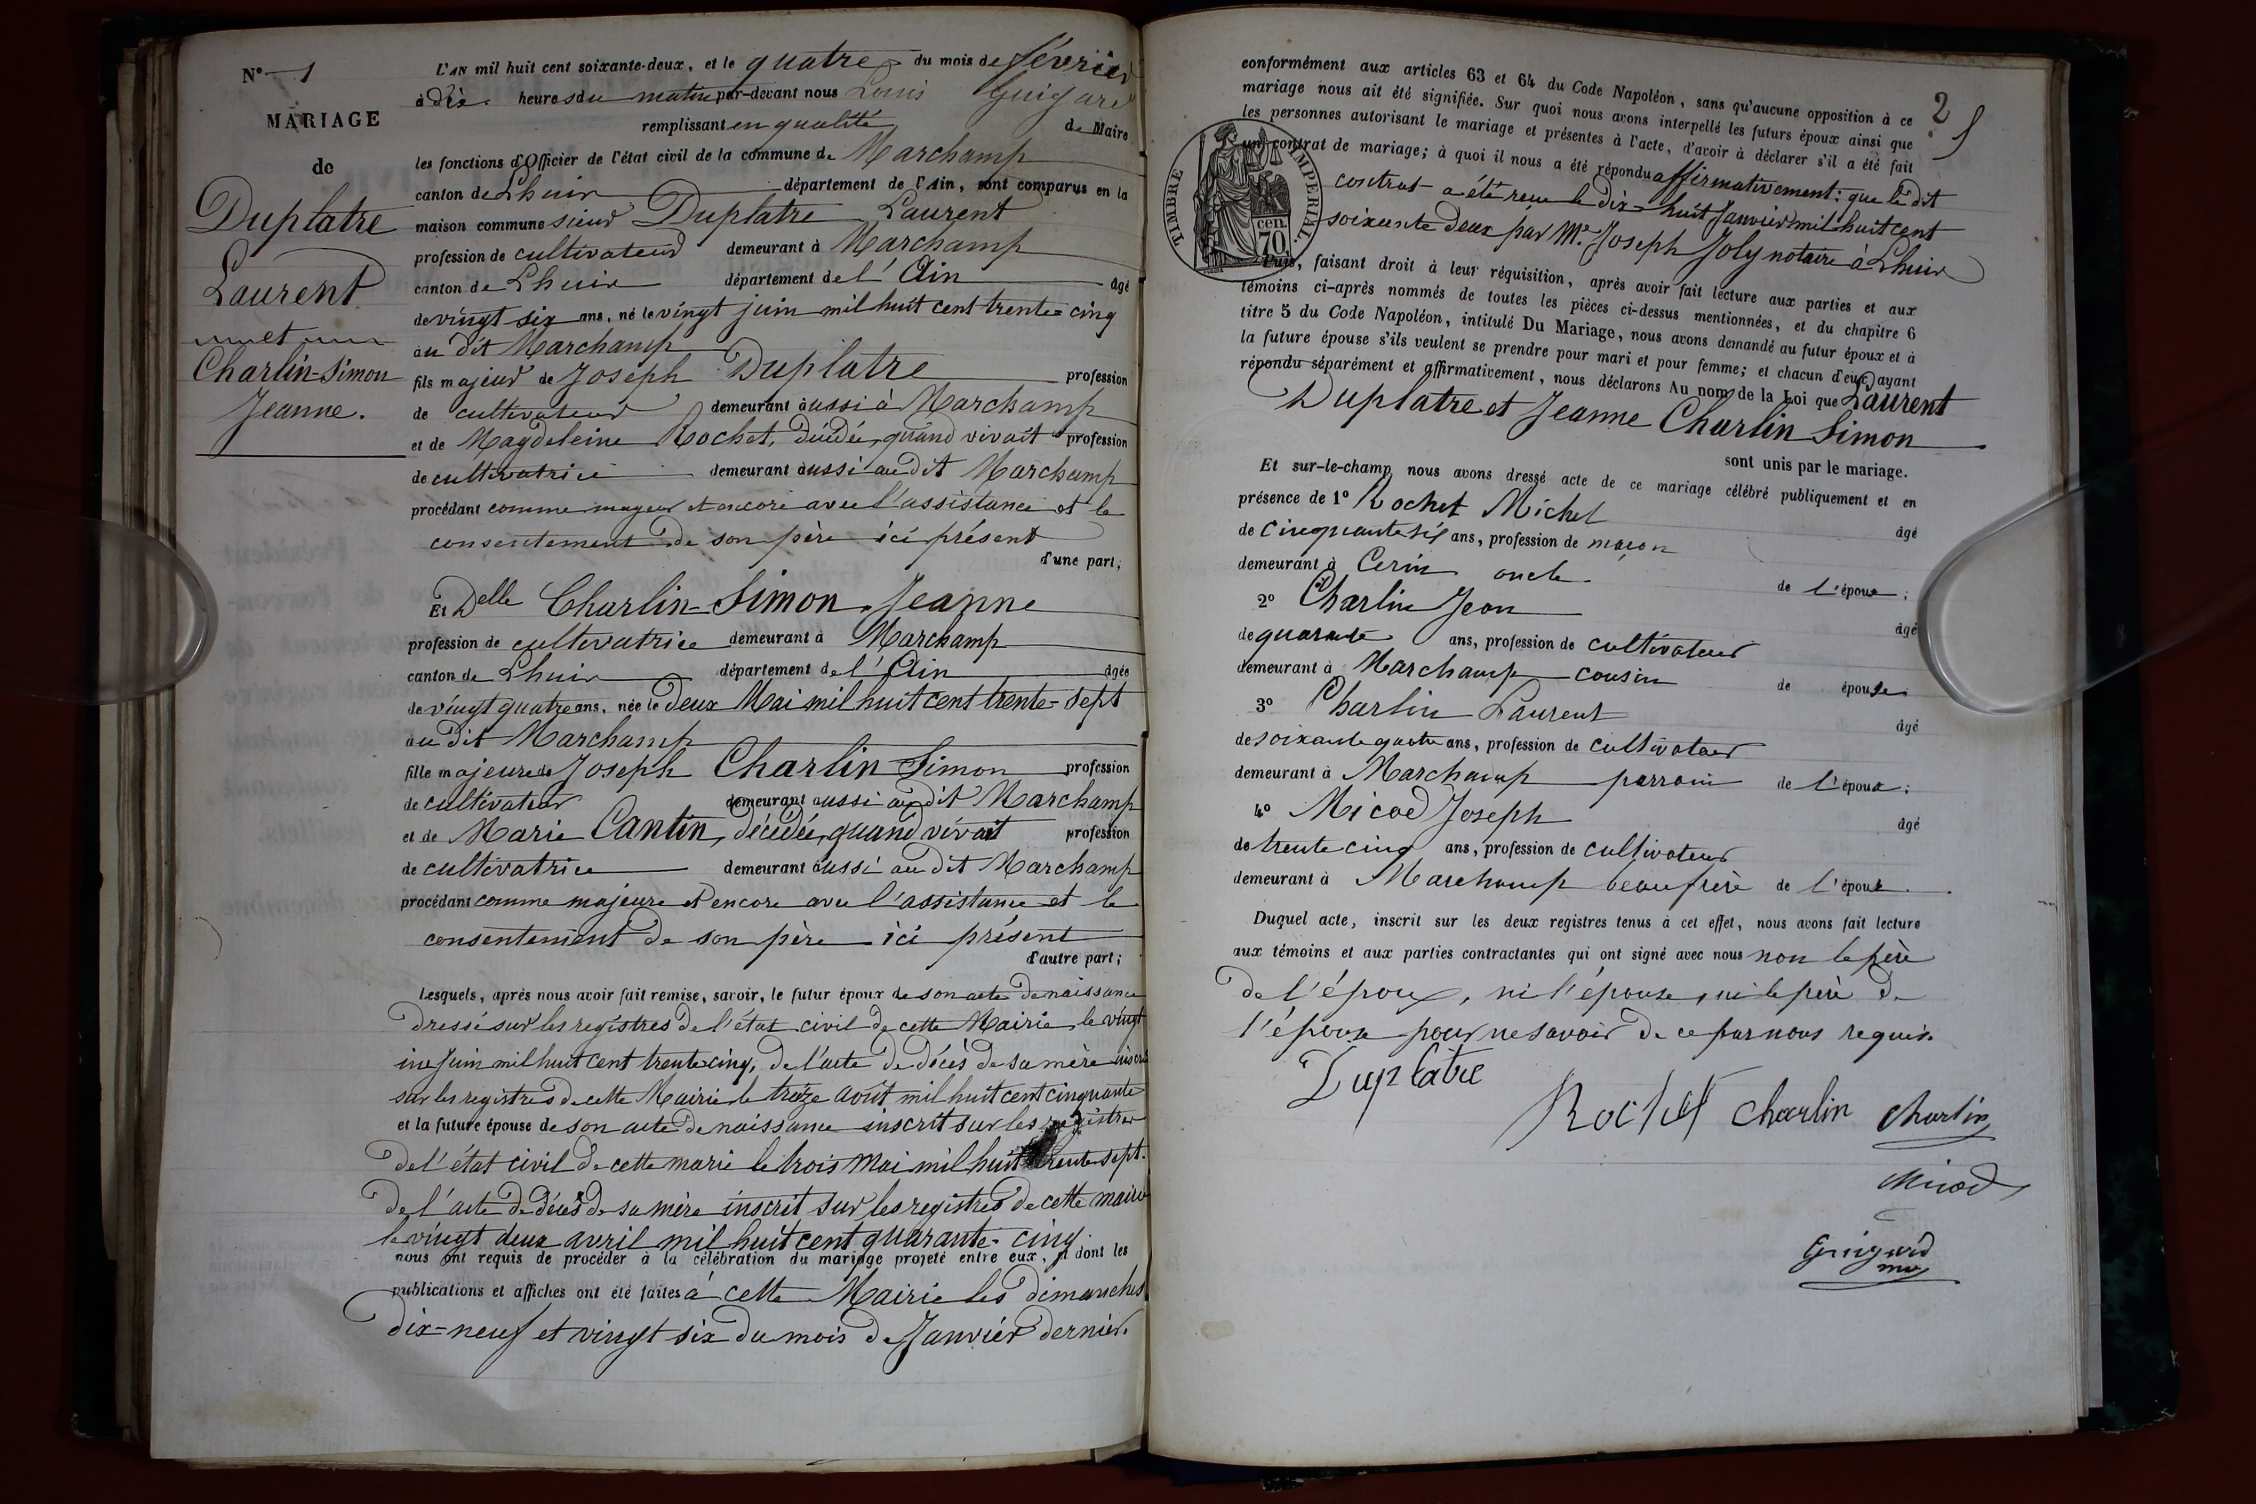 N° 1
MARIAGE
de
Duplatre
Laurent
et
Charlin-Simon
Jeanne.
L'AN mil huit cent soixante-deux, et le quatre du mois de février
à dix heures du matin par-devant nous Louis Guigard
remplissant en qualité de Maire
les fonctions d'Officier de l'état civil de la commune de Marchamp
canton de Lhuir département de l'Ain, sont comparus en la
maison commune sieur Duplatre Laurent
profession de cultivateur demeurant à Marchamp
canton de Lhuir département de l'Ain âgé
de vingt six ans, né le vingt juin mil huit cent trente-cinq
au dit Marchamp
fils majeur de Joseph Duplatre profession
de cultivateur demeurant aussi à Marchamp
et de Magdeleine Rochet, décédée, quand vivait profession
de cultivatrice demeurant aussi au dit Marchamp
procédant comme majeur et encore avec l'assistance et le
consentement de son père ici présent
d'une part;
Et Delle Charlin-Simon Jeanne
profession de cultivatrice demeurant à Marchamp
canton de Lhuir département de l'Ain âgée
de vingt quatre ans, née le deux Mai mil huit cent trente-sept
au dit Marchamp
fille majeure de Joseph Charlin Simon profession
de cultivateur demeurant aussi au dit Marchamp
et de Marie Cantin, décédée, quand vivait profession
de cultivatrice demeurant aussi au dit Marchamp
procédant comme majeure et encore avec l'assistance et le
consentement de son père ici présent
d'autre part;
Lesquels, après nous avoir fait remise, savoir, le futur époux de son acte de naissance
dressé sur les registres de l'état civil de cette Mairie le vingt
Juin mil huit cent trente cinq, de l'acte de décès de sa mère inscrit
sur les registres de cette Mairie le treize août mil huit cent cinquante
et la future épouse de son acte de naissance inscrit sur les registres
de l'état civil de cette marie le trois Mai mil huit trente sept.
de l'acte de décès de sa mère inscrit sur les registres de cette mairie
le vingt deux avril mil huit cent quarante-cinq
nous ont requis de procéder à la célébration du mariage projeté entre eux, et dont les
publications et affiches ont été faites à cette Mairie les dimanches
dix-neuf et vingt six du mois de Janvier dernier.
2
conformément aux articles 63 et 64 du Code Napoléon, sans qu'aucune opposition à ce
mariage nous ait été signifiée. Sur quoi nous avons interpellé les futurs époux ainsi que
les personnes autorisant le mariage et présentes à l'acte, d'avoir à déclarer s'il a été fait
un contrat de mariage; à quoi il nous a été répondu affirmativement: que le dit
contrat a été reçu le dix-huit Janvier mil huit cent
soixante deux par Me Joseph Joly notaire à Lhuir
TIMBRE IMPERIAL.
cen.
70
Puis, faisant droit à leur réquisition, après avoir fait lecture aux parties et aux
témoins ci-après nommés de toutes les pièces ci-dessus mentionnées, et du chapitre 6
titre 5 du Code Napoléon, intitulé Du Mariage, nous avons demandé au futur époux et à
la future épouse s'ils veulent se prendre pour mari et pour femme; et chacun d'eux ayant
répondu séparément et affirmativement, nous déclarons Au nom de la Loi que Laurent
Duplatre et Jeanne Charlin Simon
sont unis par le mariage.
Et sur-le-champ nous avons dressé acte de ce mariage célébré publiquement et en
présence de 1° Rochet Michel âgé
de cinquante six ans, profession de maçon
demeurant à Cerin oncle de l'époux;
2° Charlin Jean âgé
de quarante ans, profession de cultivateur
demeurant à Marchamp cousin de épouse
3° Charlin Laurent âgé
de soixante quatre ans, profession de cultivateur
demeurant à Marchamp parrain de l'époux;
4° Micod Joseph âgé
de trente cinq ans, profession de cultivateur
demeurant à Marchamp beaufrère de l'époux.
Duquel acte, inscrit sur les deux registres tenus à cet effet, nous avons fait lecture
aux témoins et aux parties contractantes qui ont signé avec nous non le père
de l'époux, ni l'épouse, ni le père de
l'épouse pour ne savoir de ce par nous requis.
Duplatre
Rochet Charlin Charlin
Micod
Guigard